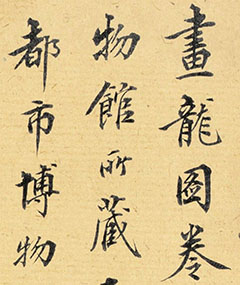 畫龍圖卷
物館所藏
都市博物